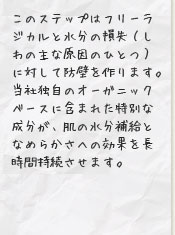 このステップはフリーラ
ジカルと水分の損失（し
わの主な原因のひとつ）
に対して防壁を作ります。
当社独自のオーガニック
ベースに含まれた特別な
成分が、肌の水分補給と
なめらかさへの効果を長
時間持続させます。